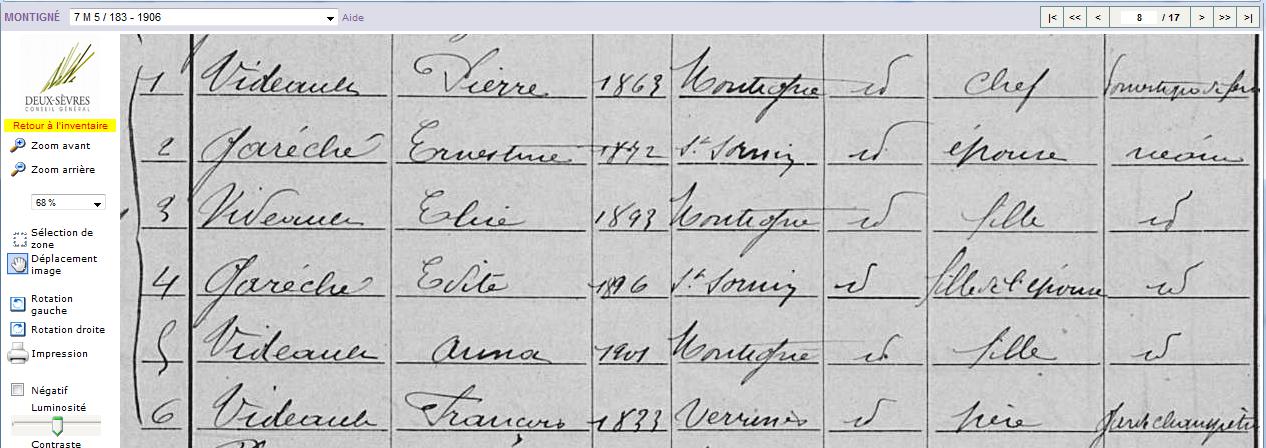 MONTIGNÉ 7 M 5 / 183 - 1906 Aide |< << < 8 / 17 > >> >|
DEUX-SÈVRES
CONSEIL GÉNÉRAL
Retour à l'inventaire
Zoom avant
Zoom arrière
68 %
Sélection de
zone
Déplacement
image
Rotation
gauche
Rotation droite
Impression
Négatif
Luminosité
Contraste
1 Videault Pierre 1863 Montigné id chef
2 Garéché Ernestine 1872 St Sornin id épouse néant
3 Videault Elise 1893 Montigné id fille id
4 Garéché Edite 1896 St Sornin id fille de l'épouse id
5 Videault Anna 1901 Montigné id fille id
6 Videault François 1833 Verrines id père Garde champêtre